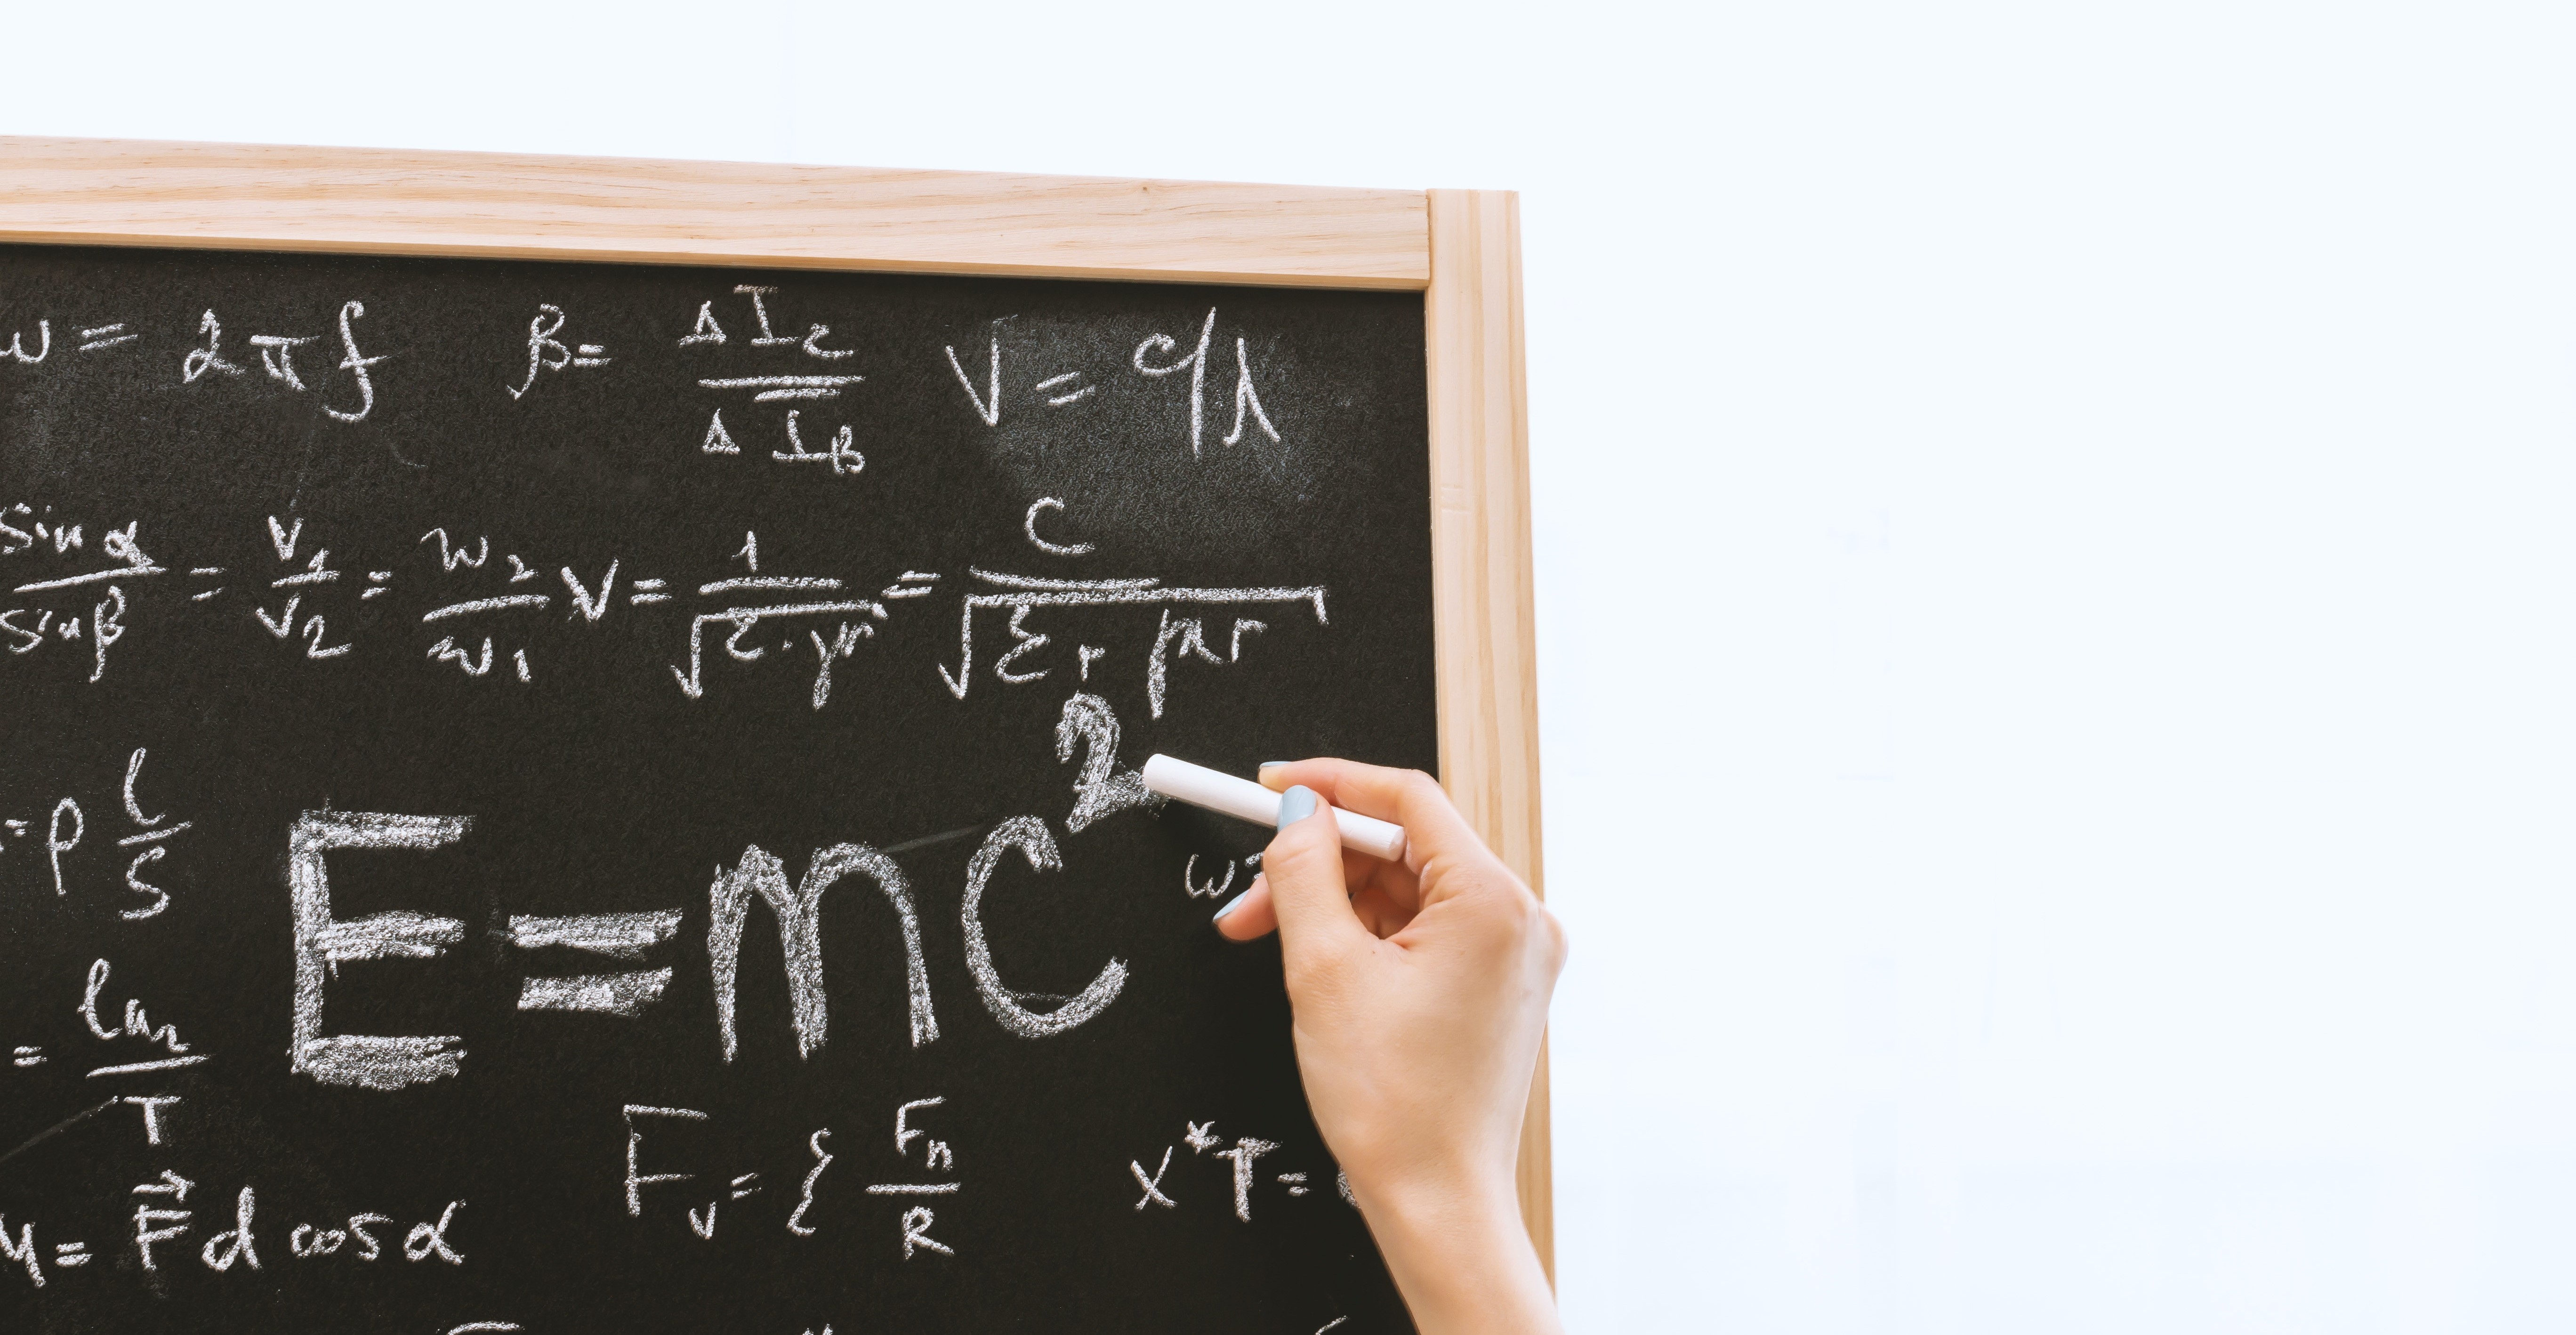 ω = 2πf β = ΔI_C / ΔI_B V = qλ
sin α / sin β = v₁ / v₂ = w₂ / w₁ V = 1 / √(ε · μ) = C / √(ε_r μ_r)
= ρ l / S
E = mc²
ω =
= ln₂ / T
F_v = { F_n / R x*T =
M = F⃗ d cos α